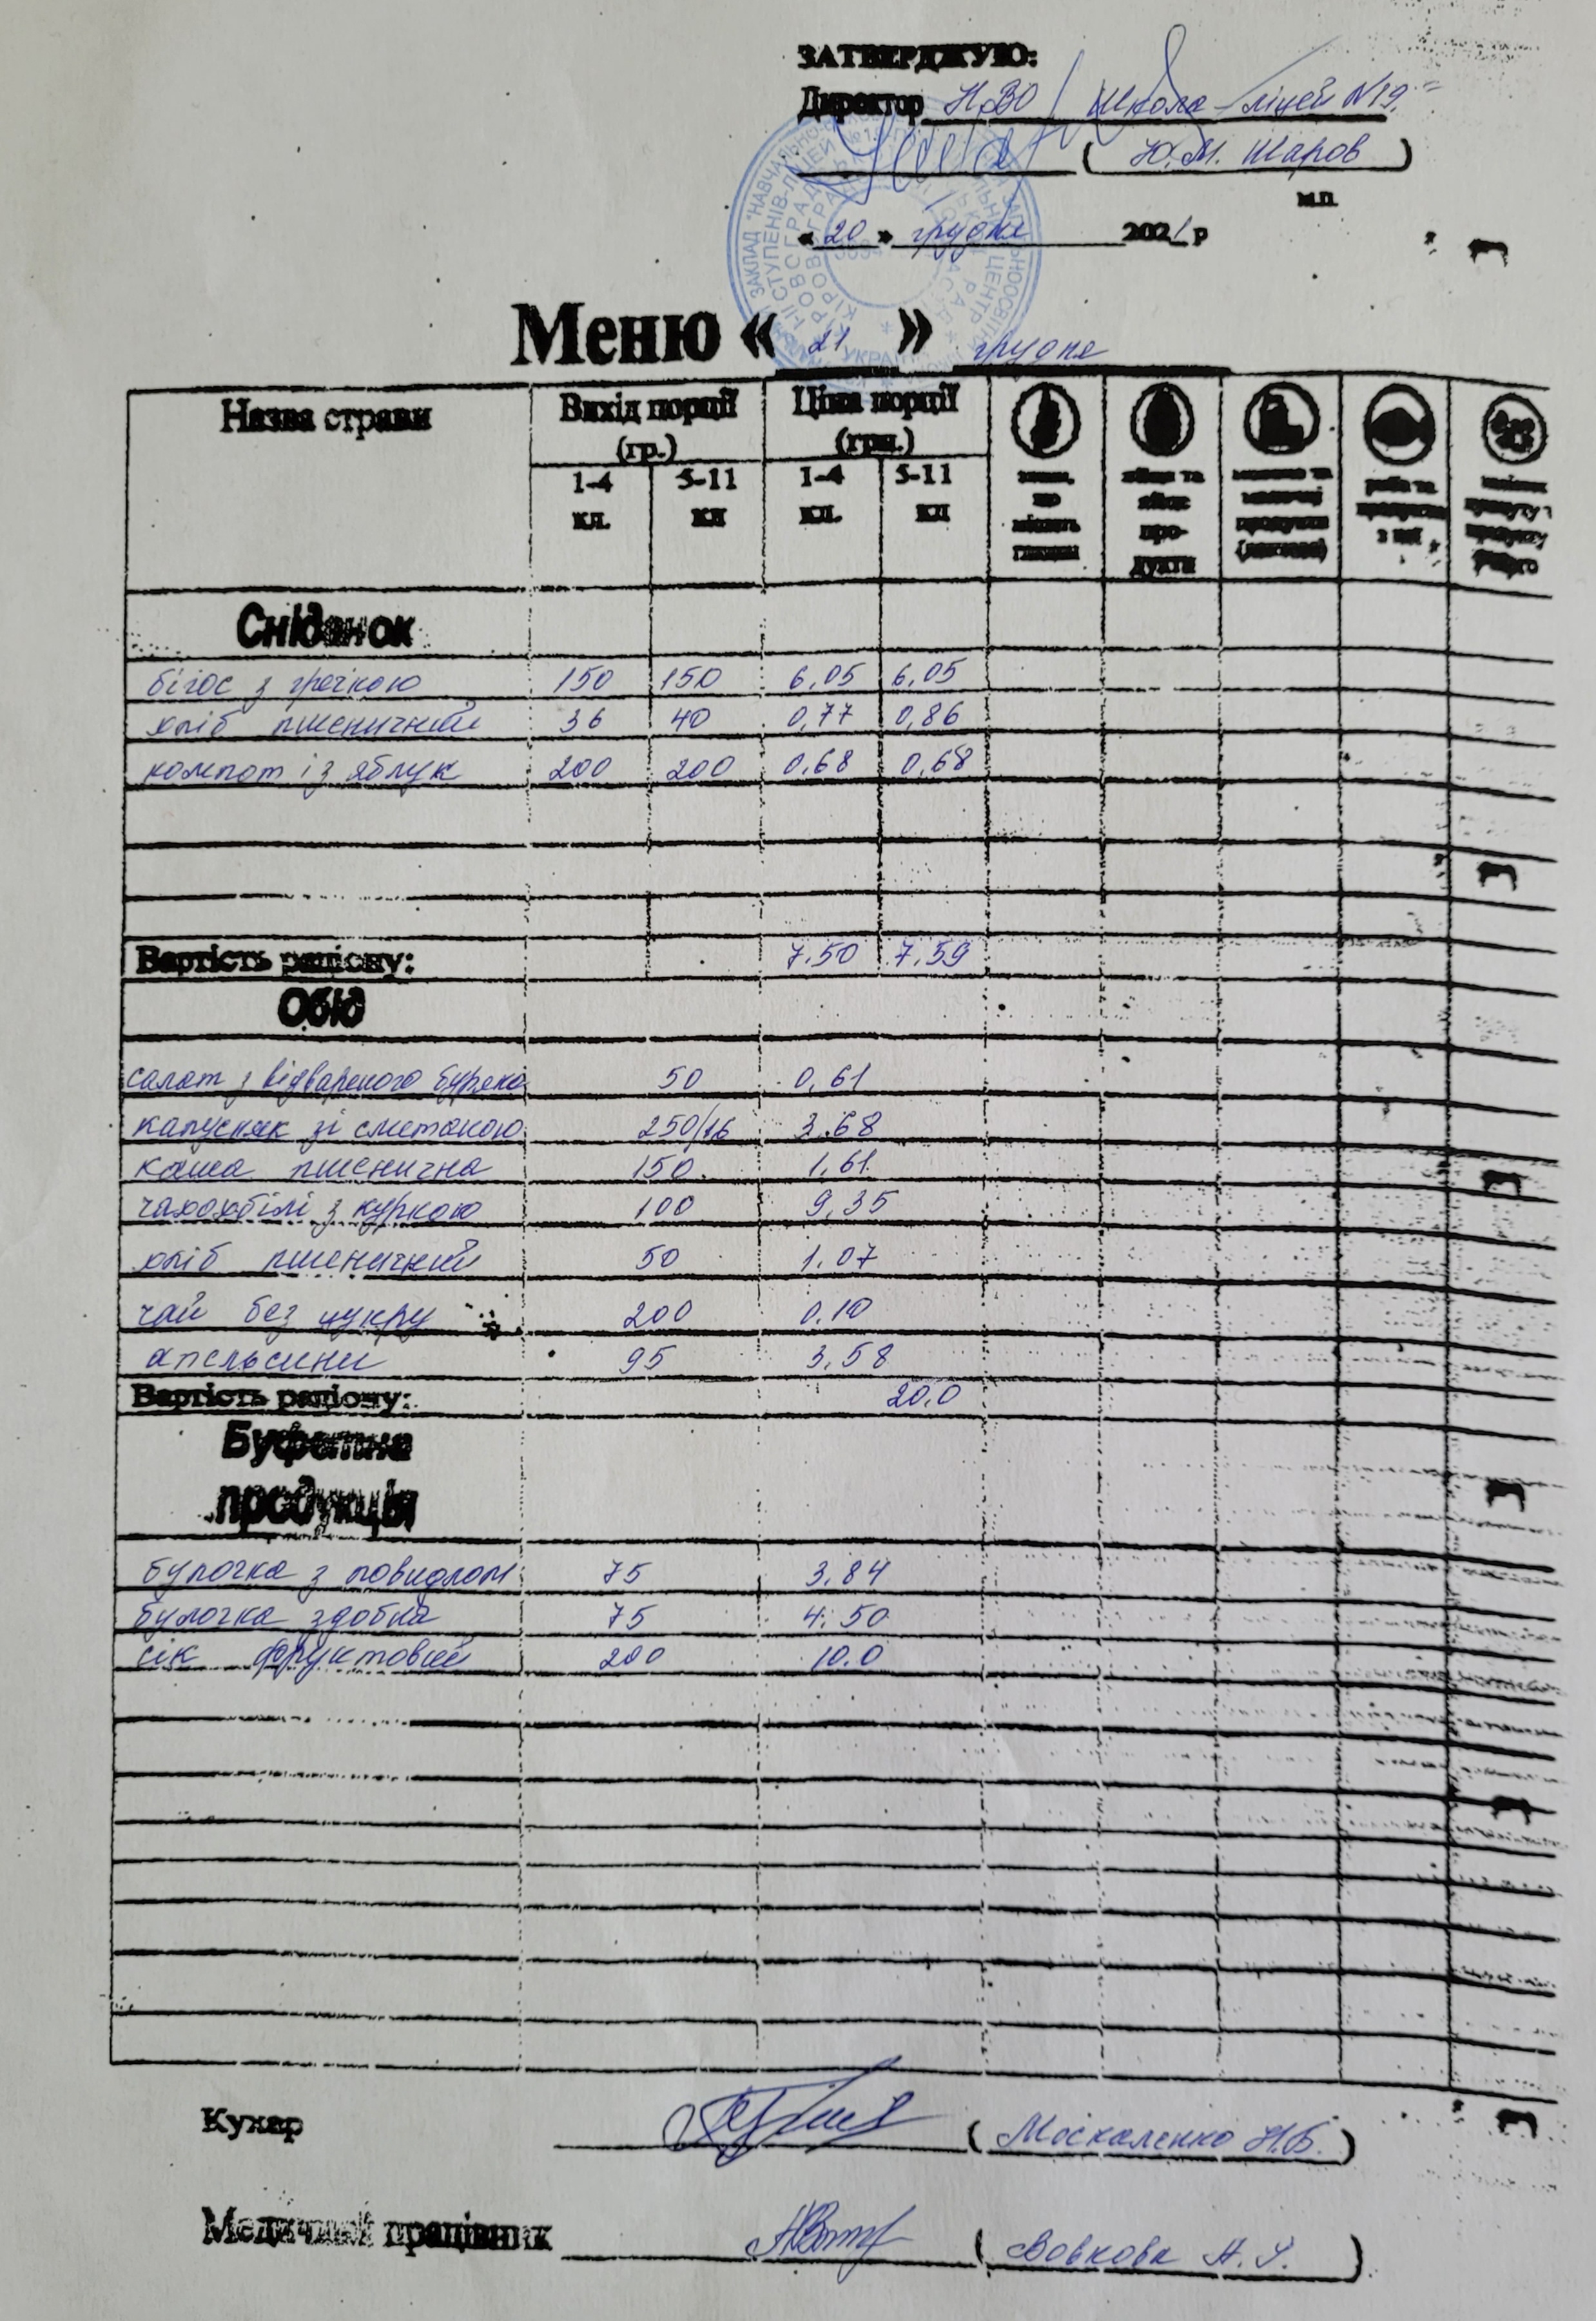 ЗАТВЕРДЖУЮ:
Директор НВО Школа-ліцей №19"
( Ю.М. Шаров )
м.п.
« 20 » грудня 2021 р
Меню « 21 » грудня
Назва страви Вихід порції (гр.) Ціна порції (грн.)
1-4 кл. 5-11 кл 1-4 кл. 5-11 кл
що містять
яйця та яйце про-дукти
молоко та молочні продукти (лактоза)
риба та продукти з неї
Сніданок
бігос з гречкою 150 150 6,05 6,05
хліб пшеничний 36 40 0,77 0,86
компот із яблук 200 200 0,68 0,68
Вартість раціону: 7.50 7,59
Обід
салат з відвареного буряка 50 0,61
капусняк зі сметаною 250/16 3.68
каша пшенична 150 1,61
чахохбілі з куркою 100 9,35
хліб пшеничний 50 1.07
чай без цукру 200 0.10
апельсини 95 3,58
Вартість раціону: 20.0
Буфетна
продукція
булочка з повидлом 75 3.84
булочка здобна 75 4.50
сік фруктовий 200 10.0
Кухар ( Москаленко Н.Б. )
Медичний працівник ( Вовкова )